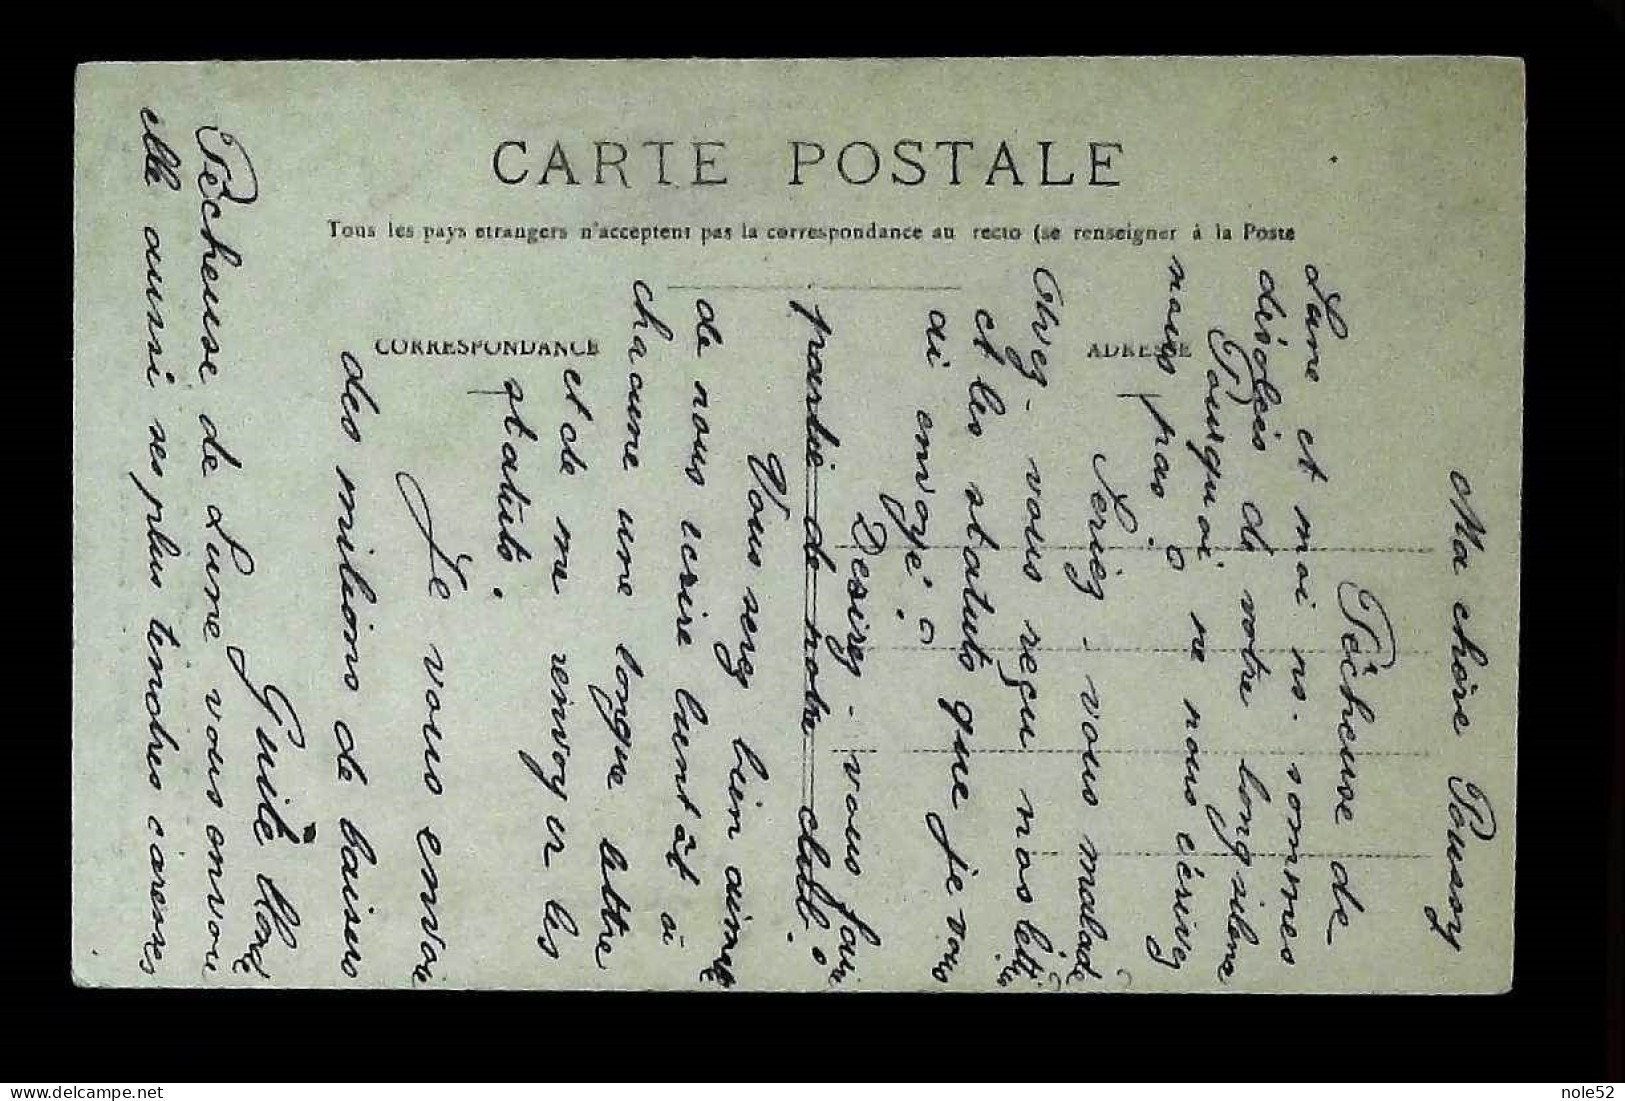 CARTE POSTALE
Tous les pays etrangers n'acceptent pas la correspondance au recto (se renseigner à la Poste
CORRESPONDANCE
ADRESSE
Ma chère Poussy
Pêcheuse de
Lune et moi ns. sommes
désolées de votre long silence
Pourquoi ne nous écrivez
nous pas ?
Seriez-vous malade ?
Avez-vous reçu nos lettres
et les statuts que je vous
ai envoyé ?
Desirez-vous faire
partie de notre club ?
Vous serez bien aimée
de nous ecrire bientôt à
chacune une longue lettre
et de me renvoyer les
statuts.
Je vous envoi
des milions de baisers
Guite Cloré
Pêcheuse de Lune vous envoi
elle aussi ses plus tendres caresses
nole52